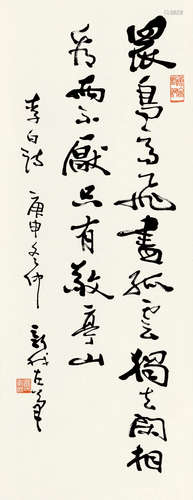 眾鳥高飛盡孤雲獨去閑相
看兩不厭只有敬亭山
李白詩 庚申冬仲 新我左筆